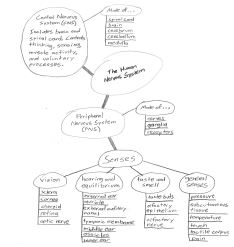 Central Nervous
System (CNS)
Includes brain and
spinal cord. Controls
thinking, sensing,
muscle activity,
and voluntary
processes.
Made of...
spinal cord
brain
cerebrum
cerebellum
medulla
The Human
Nervous System
Peripheral
Nervous System
(PNS)
Made of...
nerves
ganglia
receptors
Senses
vision
sclera
cornea
choroid
retina
optic nerve
hearing and
equilibrium
external ear
auricle
external auditory
canal
tympanic membrane
middle ear
ossicles
inner ear
taste and
smell
taste buds
olfactory
epithelium
olfactory
nerve
general
senses
pressure
subcutaneous
tissue
temperature
touch
tactile corpus
pain